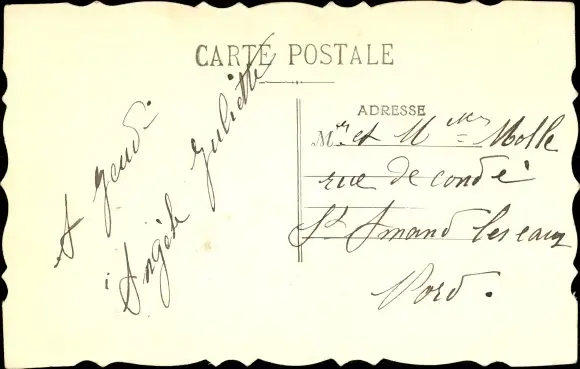 CARTE POSTALE
A Gend.
Angèle Juliette
ADRESSE
Mr et Mme Molle
rue de condé
St Amand les eaux
Nord.